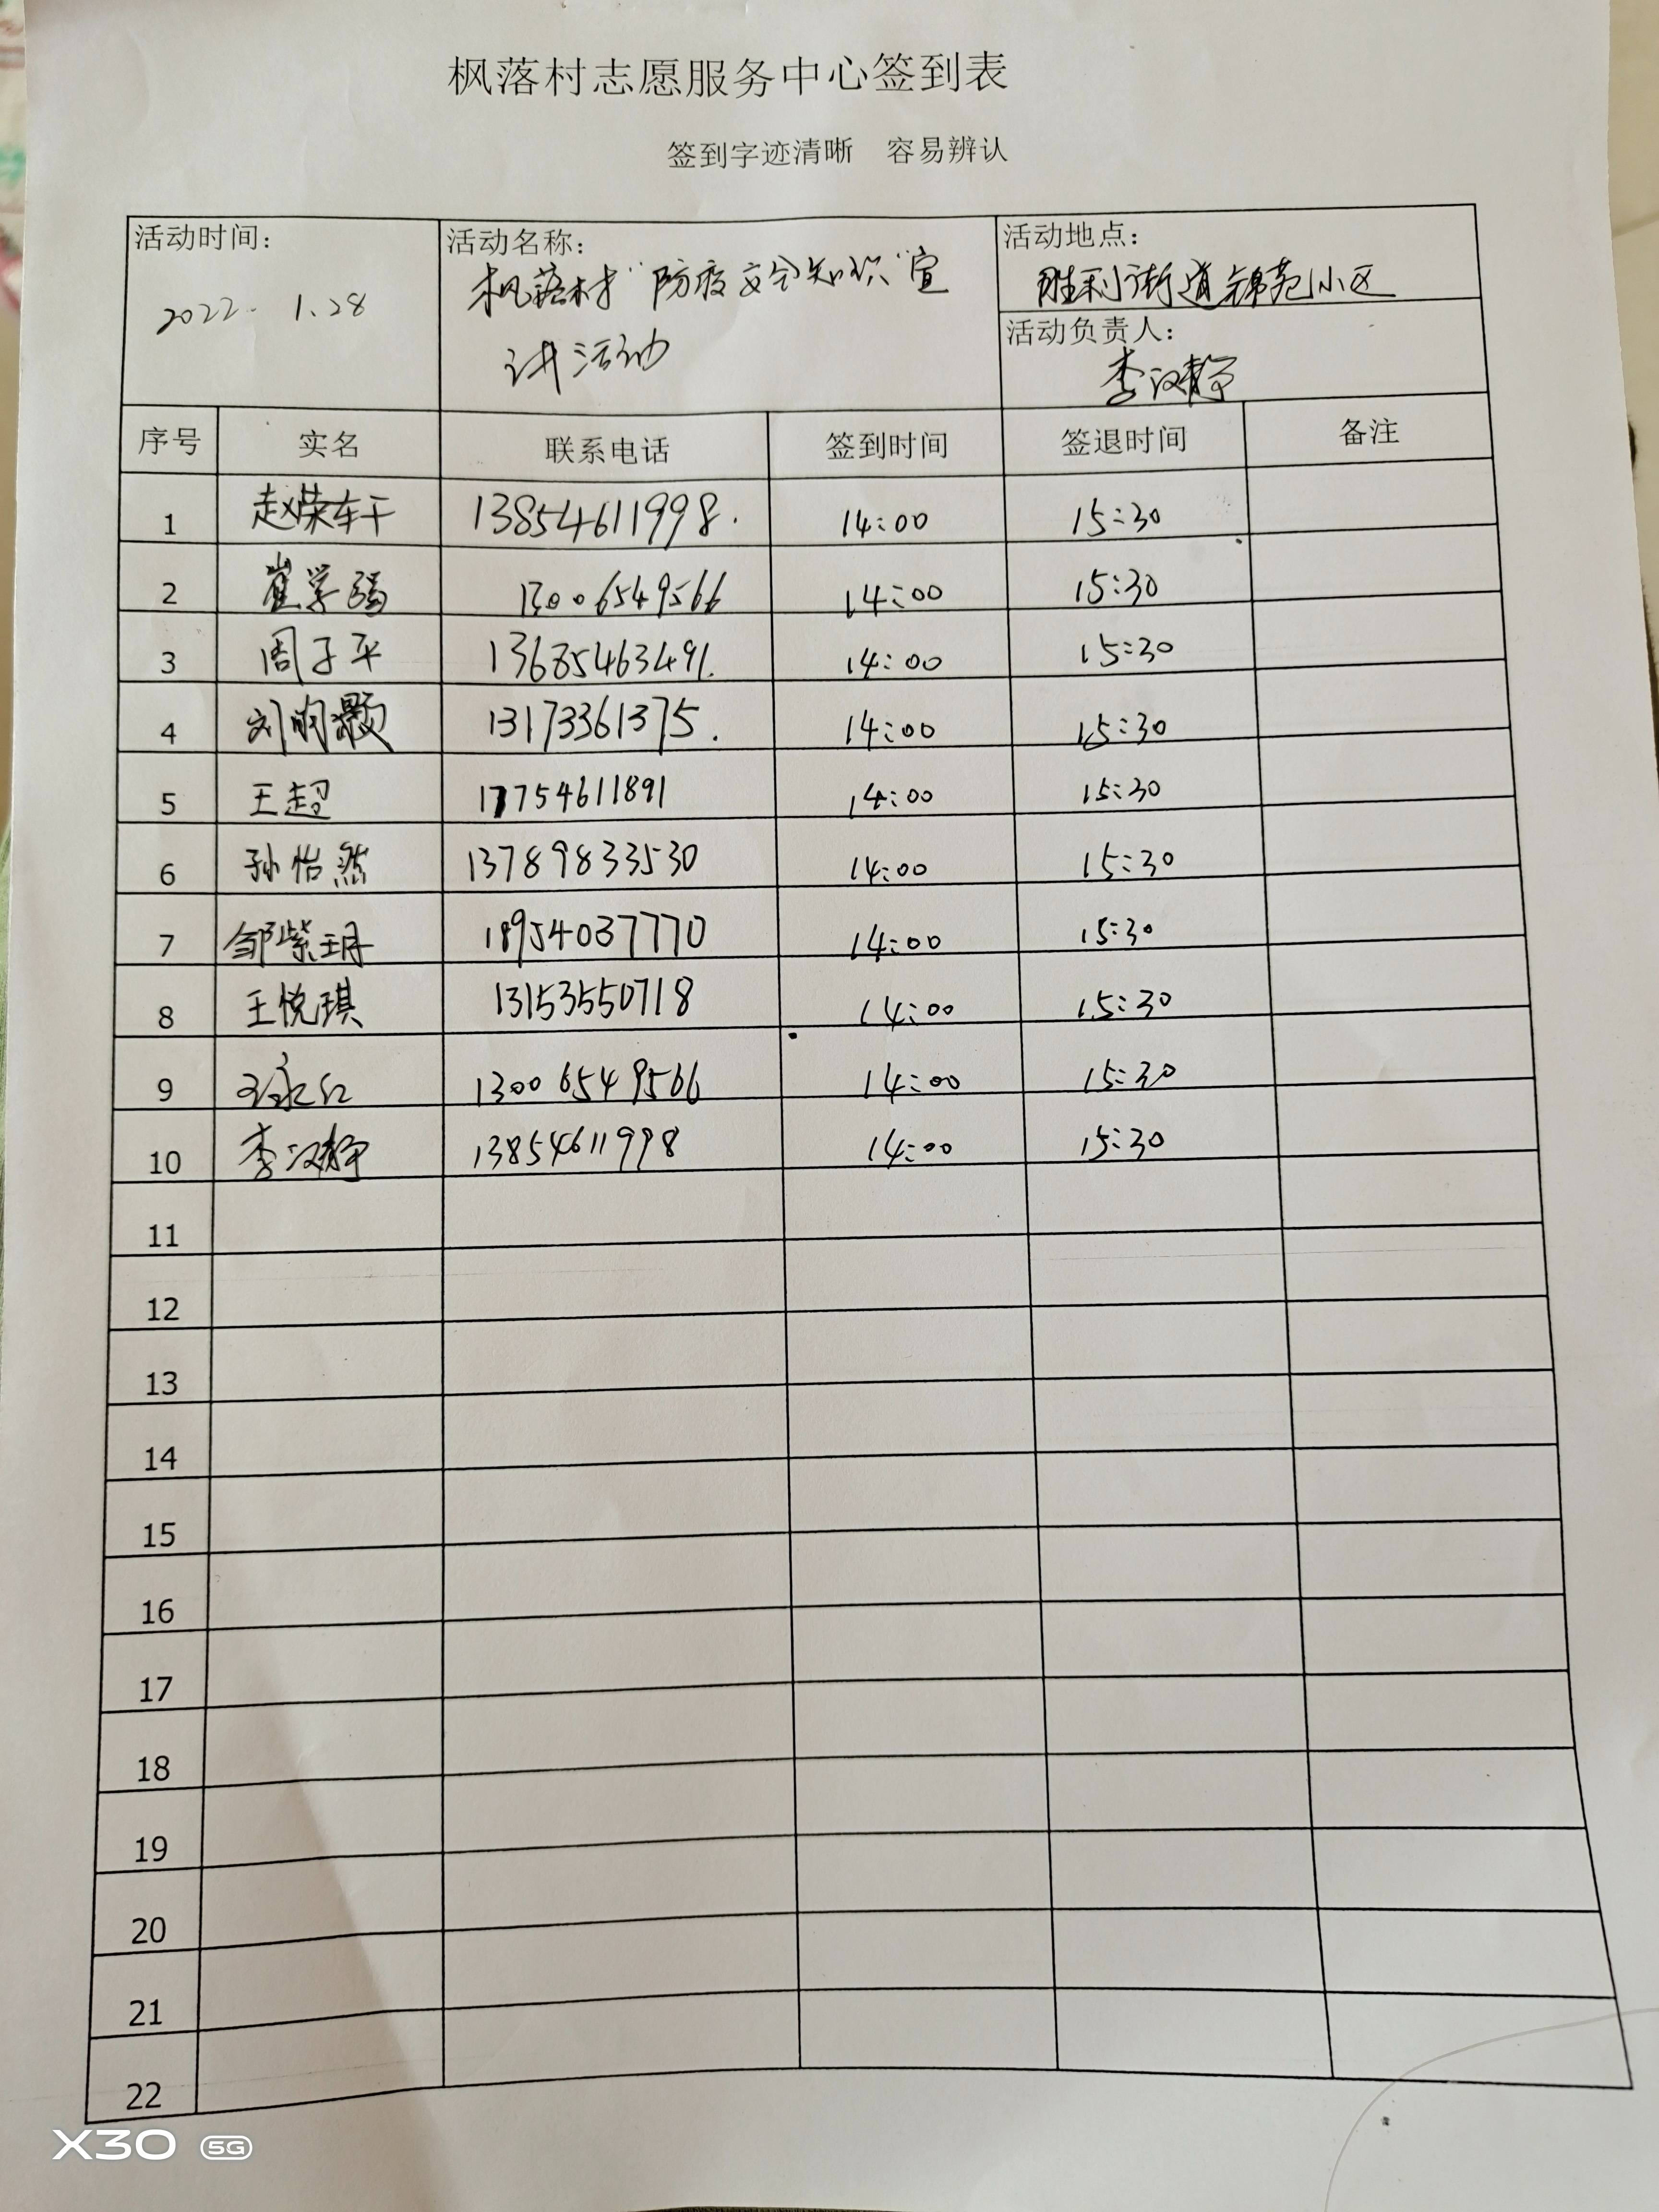 枫落村志愿服务中心签到表
签到字迹清晰 容易辨认
活动时间: 活动名称: 活动地点:
2022. 1.28 枫落村“防疫安全知识”宣 胜利街道锦苑小区
讲活动 活动负责人:
李汉静
序号 实名 联系电话 签到时间 签退时间 备注
1 赵荣轩 13854611998. 14:00 15:30
2 崔学强 13006549566 14:00 15:30
3 周子平 13685463491. 14:00 15:30
4 刘昀灏 13173361375. 14:00 15:30
5 王超 17754611891 14:00 15:30
6 孙怡然 13789833530 14:00 15:30
7 邹紫玥 18954037770 14:00 15:30
8 王悦琪 13153550718 14:00 15:30
9 13006549566 14:00 15:30
10 李汉静 13854611998 14:00 15:30
11
12
13
14
15
16
17
18
19
20
21
22
X30 5G